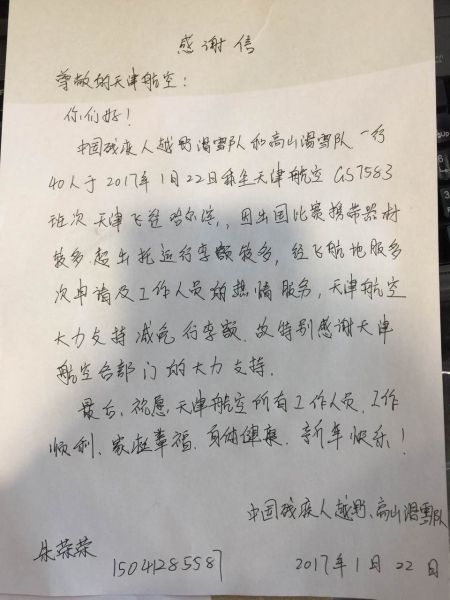 感谢信
尊敬的天津航空：
你们好！
中国残疾人越野滑雪队和高山滑雪队一行
40人于2017年1月22日乘坐天津航空GS7583
班次天津飞往哈尔滨，因出国比赛携带器材
较多，超出托运行李额较多，经飞航地服多
次申请及工作人员的热情服务，天津航空
大力支持减免行李额．故特别感谢天津
航空各部门的大力支持．
最后，祝愿，天津航空所有工作人员．工作
顺利、家庭幸福．身体健康．新年快乐！
中国残疾人越野、高山滑雪队
朱荣荣 15041285587 2017年1月22日